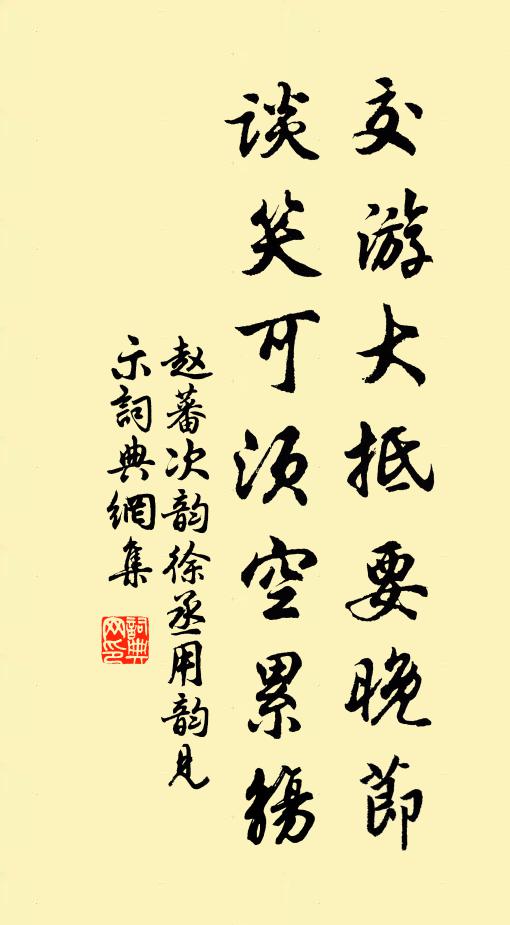 交游大抵要晚節
談笑可須空累觴
赵蕃次韵徐丞用韵見
示詞典網集
詞典
网印